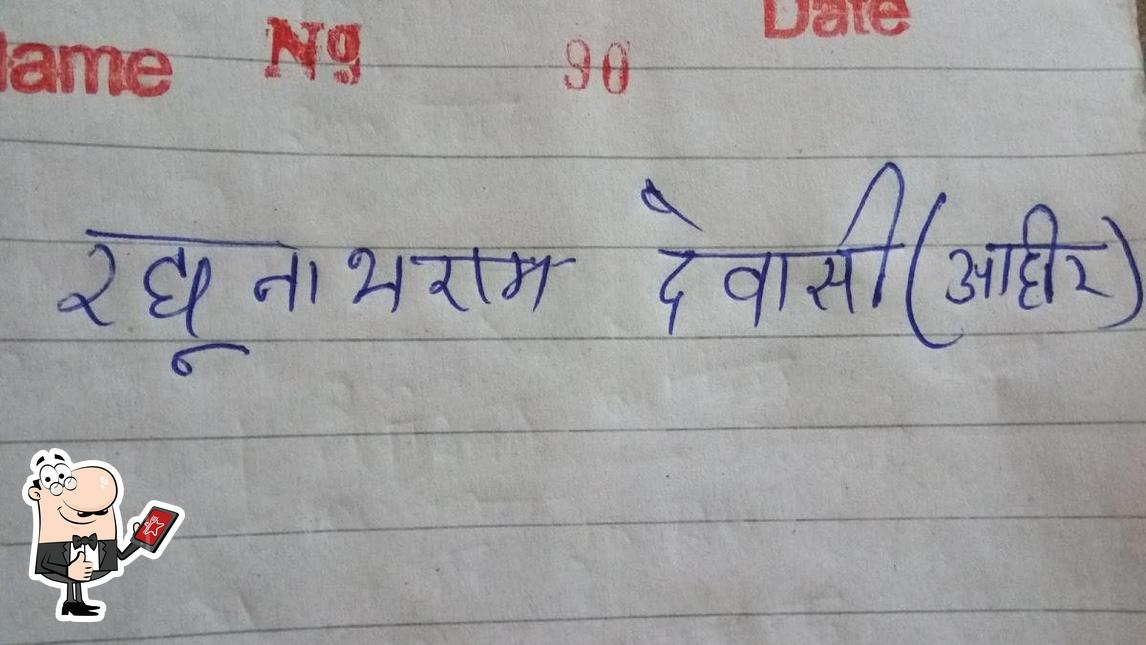 Name Ng 90 Date
रघूनाथराम देवासी (आहीर)